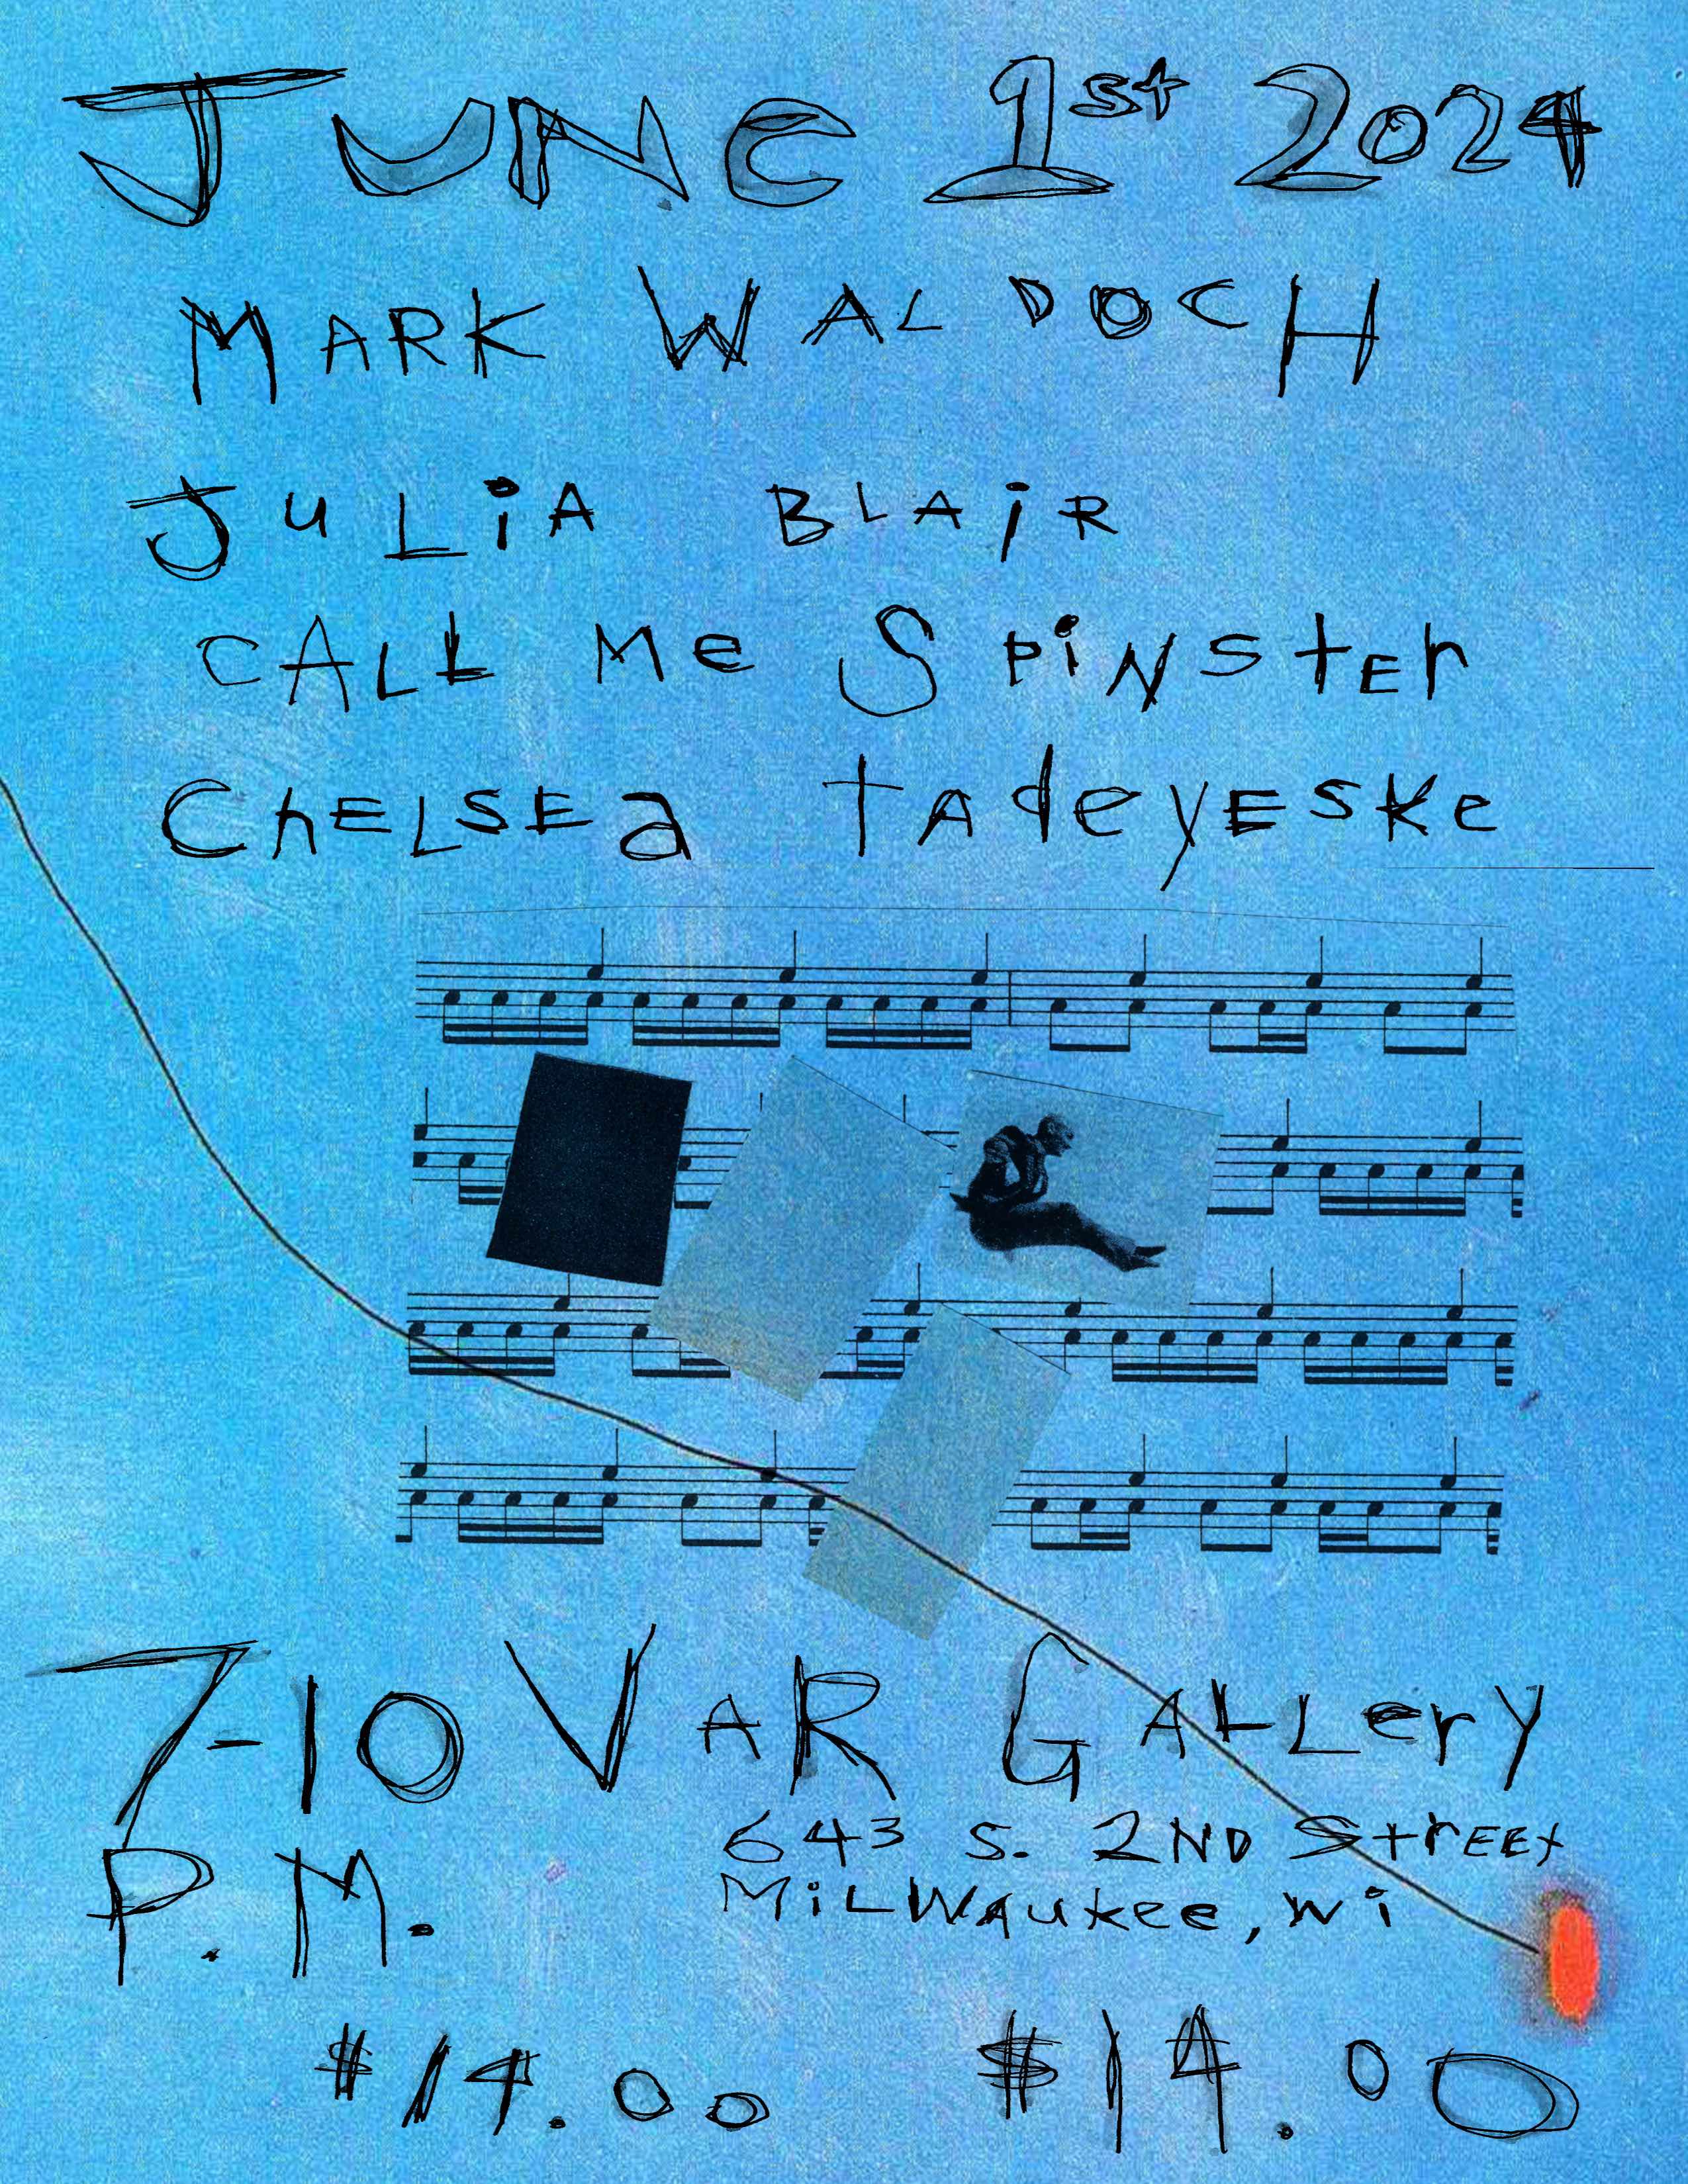 JUNE 1st 2024
MARK WALDOCH
JULiA BLAiR
CALL Me SPiNStEr
ChELSEa tAdeyESKe
7-10 VAR GALLery
P.M.
643 S. 2ND StrEEt
MiLWAukee, Wi
$14.00 $14.00